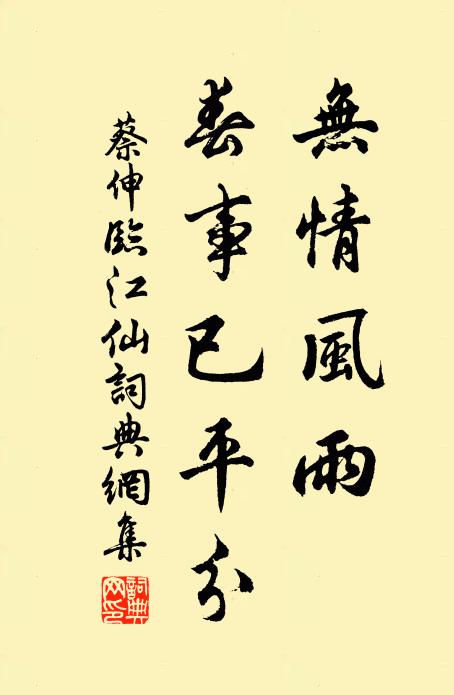 無情風雨
春事已平分
蔡伸臨江仙詞典網集
詞典網印